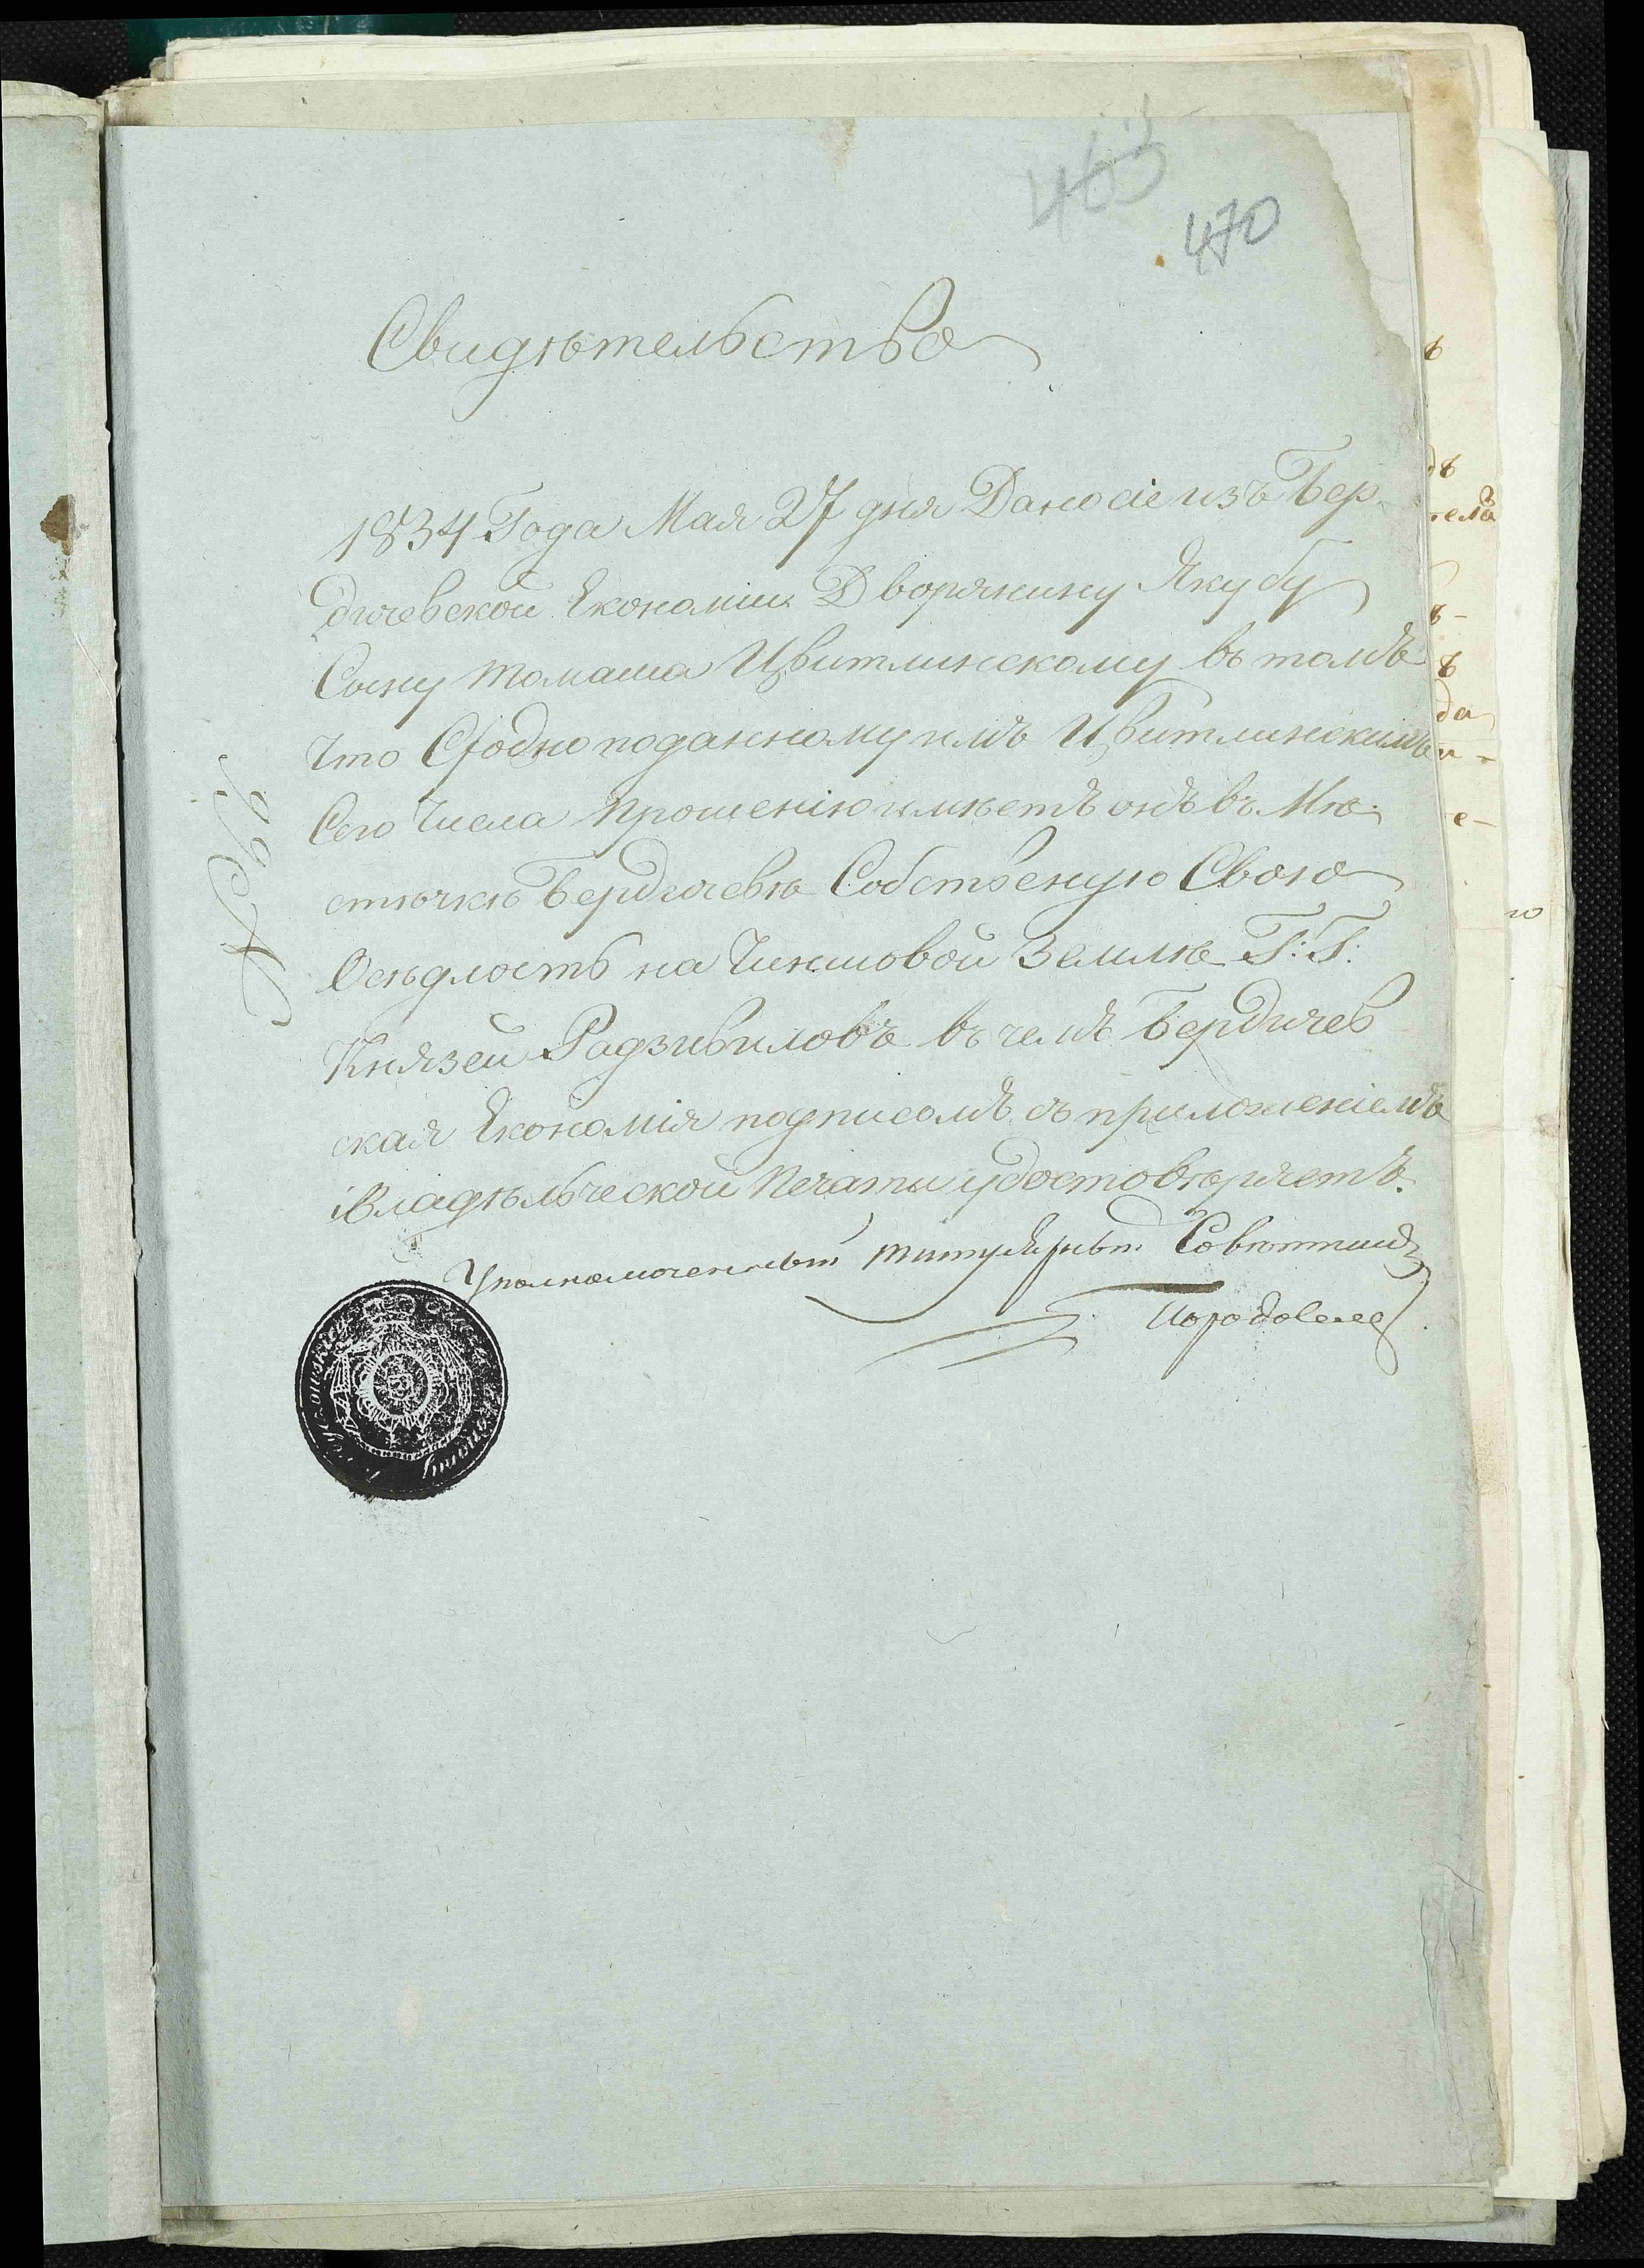 463
470
Свидѣтельство
1834 Года Мая 27 дня Дано сіе изъ Бер-
дичевской Економіи Дворянину Якубу
Сыну Томаша Цвитлинскому въ томъ
Что Сходно поданному имъ Цвитлинскимъ
Сего Числа Прошенію имѣетъ онъ въ Мѣ-
стѣчкѣ Бердичевѣ Собственую Свою
Осѣдлость на Чиншовой Землѣ Г: Г:
Князей Радзивиловъ въ чемъ Бердичев
ская Економія подписомъ съ приложеніемъ
Владѣльческой Печати удостовѣряетъ.
Уполномоченный Титулярный Совѣтникъ